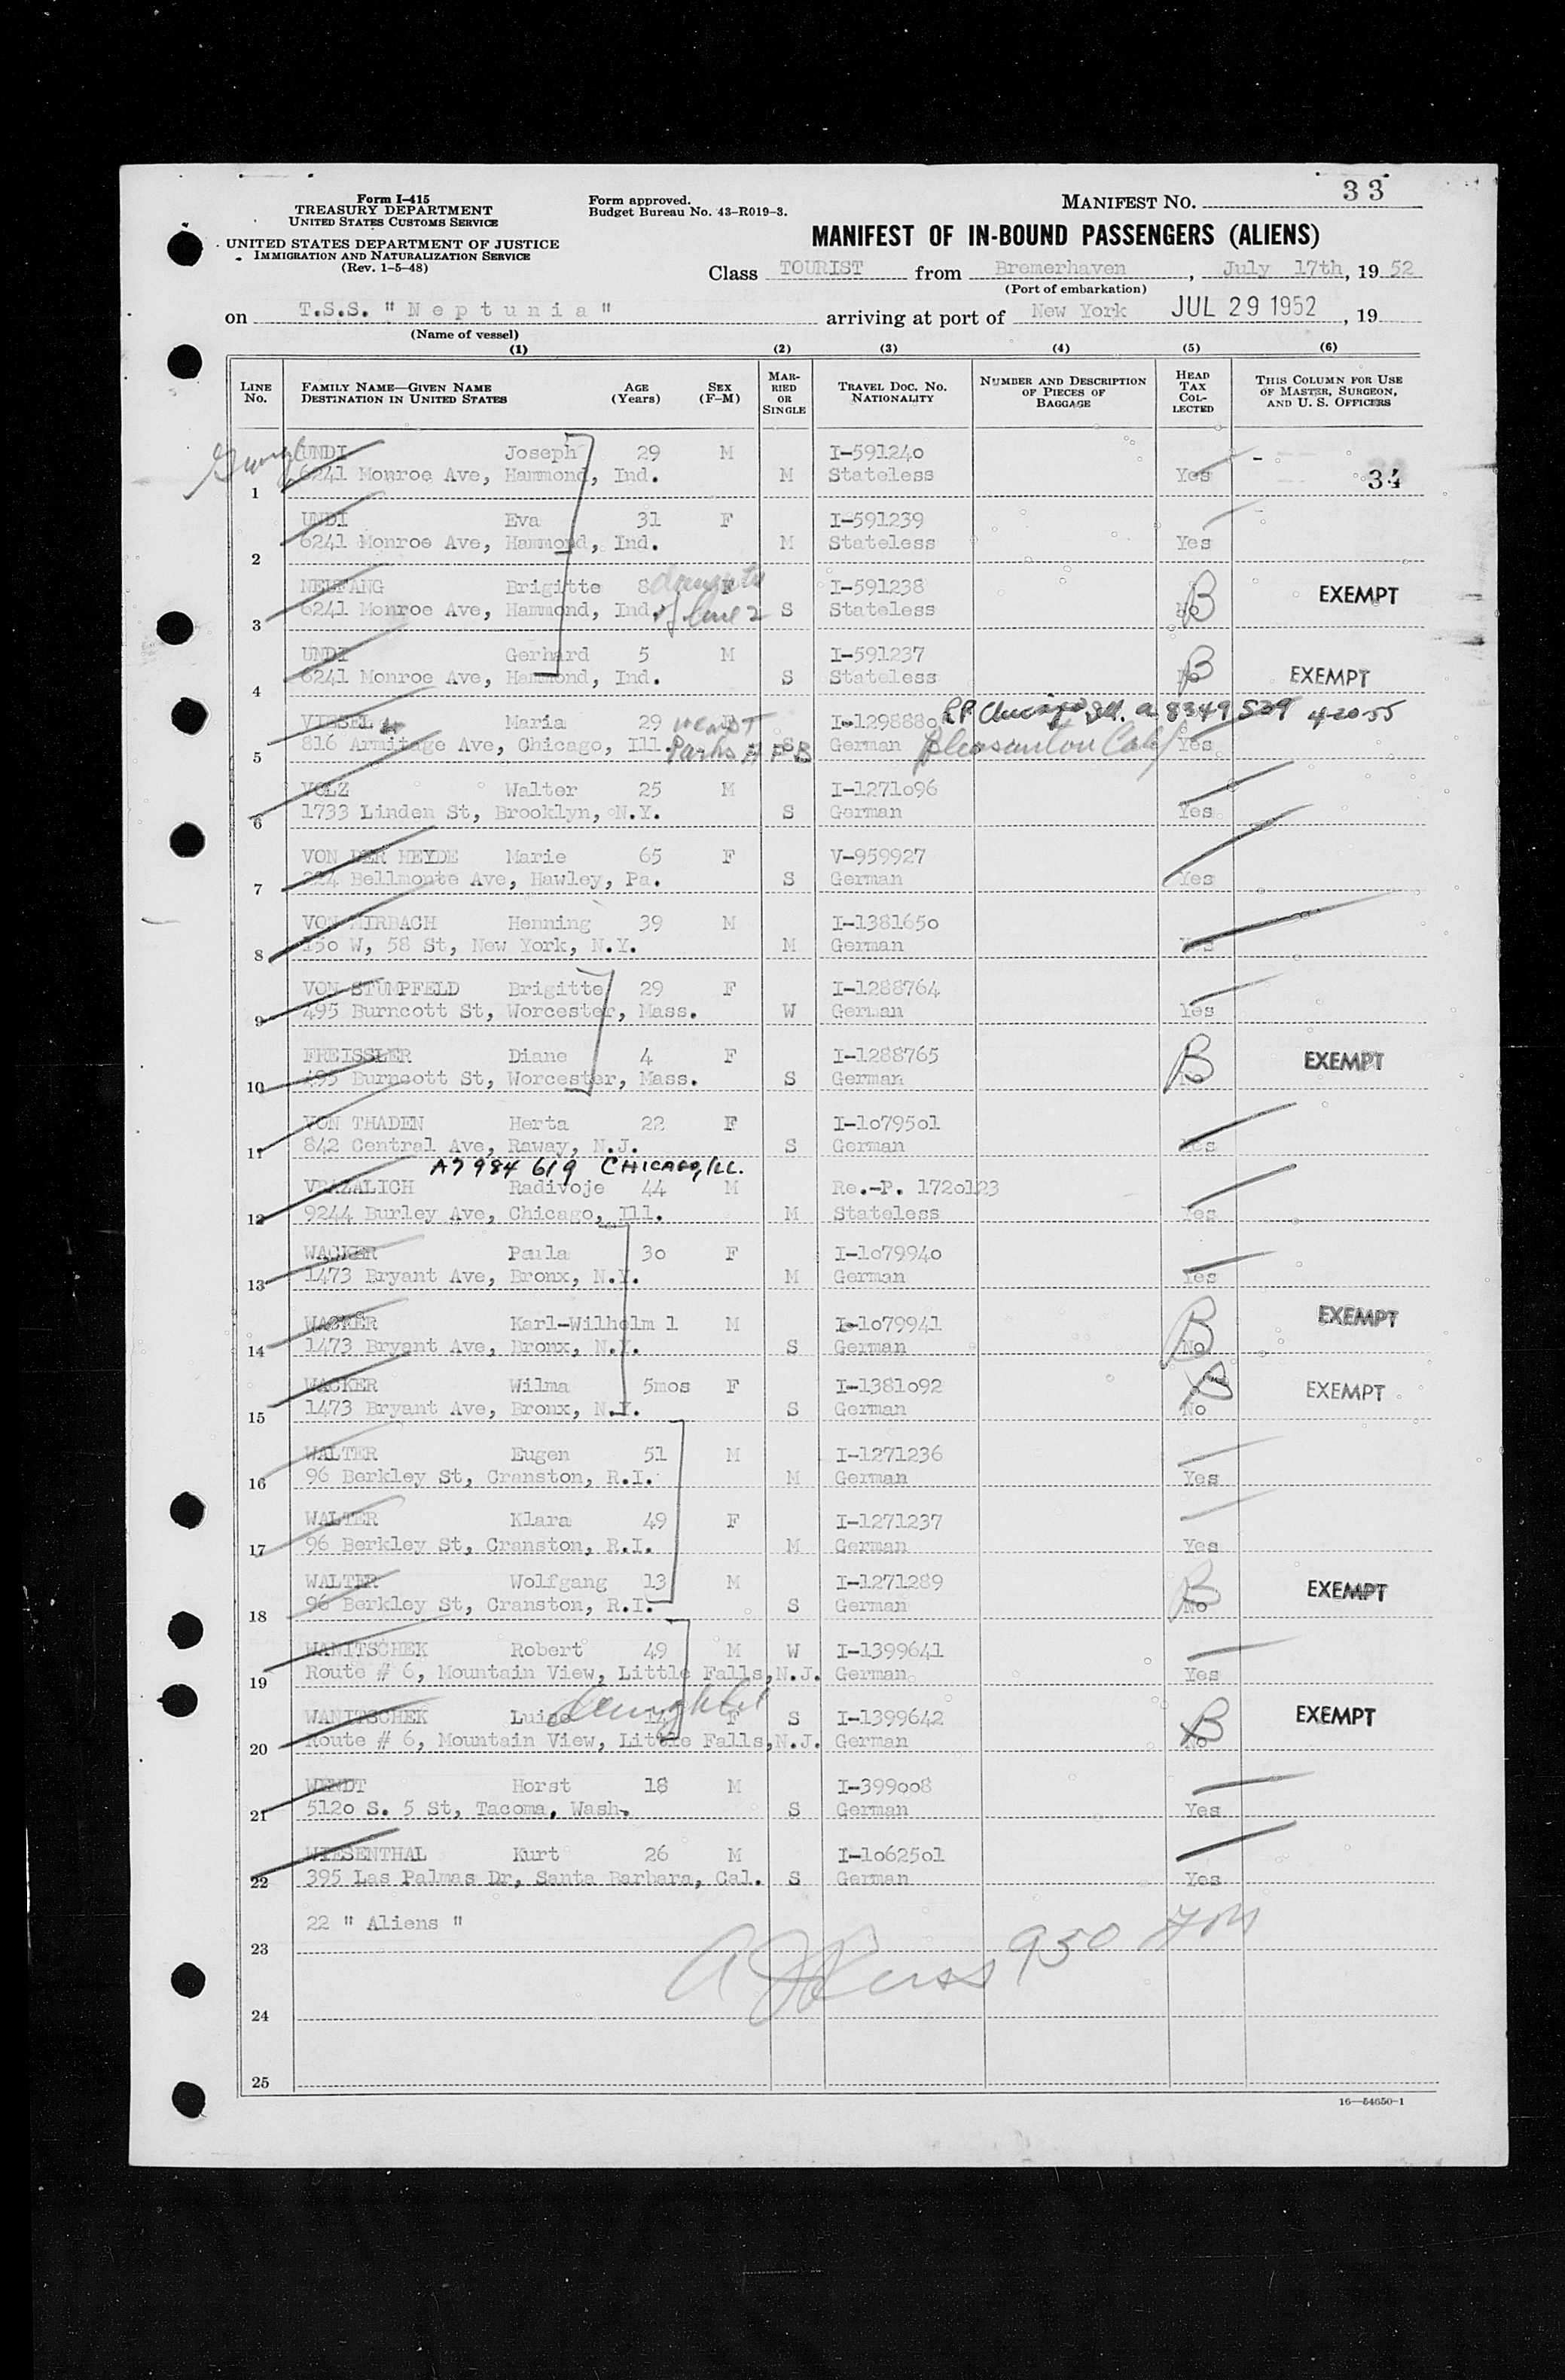 Form I-415
TREASURY DEPARTMENT
UNITED STATES CUSTOMS SERVICE
UNITED STATES DEPARTMENT OF JUSTICE
IMMIGRATION AND NATURALIZATION SERVICE
(Rev. 1-5-48)
Form approved.
Budget Bureau No. 43-R019-3.
MANIFEST NO. 33
MANIFEST OF IN-BOUND PASSENGERS (ALIENS)
Class TOURIST from Bremerhaven, July 17th, 1952
(Port of embarkation)
on T.S.S. " N e p t u n i a " arriving at port of New York JUL 29 1952, 19
(Name of vessel)
(1) (2) (3) (4) (5) (6)
LINE NO. FAMILY NAME—GIVEN NAME DESTINATION IN UNITED STATES AGE (Years) SEX (F-M) MARRIED OR SINGLE TRAVEL DOC. NO. NATIONALITY NUMBER AND DESCRIPTION OF PIECES OF BAGGAGE HEAD TAX COLLECTED THIS COLUMN FOR USE OF MASTER, SURGEON, AND U. S. OFFICERS
UNDI Joseph 29 M I-591240
1 6241 Monroe Ave, Hammond, Ind. M Stateless Yes 34
UNDI Eva 31 F I-591239
2 6241 Monroe Ave, Hammond, Ind. M Stateless Yes
NEUFANG Brigitte 8 F daughter I-591238 B EXEMPT
3 6241 Monroe Ave, Hammond, Ind. of line 2 S Stateless No
UNDI Gerhard 5 M I-591237 B EXEMPT
4 6241 Monroe Ave, Hammond, Ind. S Stateless No
VIESEL Maria 29 F WENDT I-1298880 R.P. Chicago Ill. a 8349 529 4-20-55
5 816 Armitage Ave, Chicago, Ill. Parks A F B S German Pleasanton Calif Yes
VOLZ Walter 25 M I-1271096
6 1733 Linden St, Brooklyn, N.Y. S German Yes
VON DER HEYDE Marie 65 F V-959927
7 224 Bellmonte Ave, Hawley, Pa. S German Yes
VON MIRBACH Henning 39 M I-1381650
8 150 W, 58 St, New York, N.Y. M German Yes
VON STUMPFELD Brigitte 29 F I-1288764
9 495 Burncott St, Worcester, Mass. W German Yes
FREISSLER Diane 4 F I-1288765 B EXEMPT
10 495 Burncott St, Worcester, Mass. S German No
VON THADEN Herta 22 F I-1079501
11 842 Central Ave, Raway, N.J. S German Yes
A7 984 619 CHICAGO, ILL.
VRAZALICH Radivoje 44 M Re.-P. 1720123
12 9244 Burley Ave, Chicago, Ill. M Stateless Yes
WACKER Paula 30 F I-1079940
13 1473 Bryant Ave, Bronx, N.Y. M German Yes
WACKER Karl-Wilhelm 1 M I-1079941 B EXEMPT
14 1473 Bryant Ave, Bronx, N.Y. S German No
WACKER Wilma 5mos F I-1381092 B EXEMPT
15 1473 Bryant Ave, Bronx, N.Y. S German No
WALTER Eugen 51 M I-1271236
16 96 Berkley St, Cranston, R.I. M German Yes
WALTER Klara 49 F I-1271237
17 96 Berkley St, Cranston, R.I. M German Yes
WALTER Wolfgang 13 M I-1271289 B EXEMPT
18 96 Berkley St, Cranston, R.I. S German No
WANITSCHEK Robert 49 M W I-1399641
19 Route # 6, Mountain View, Little Falls, N.J. German Yes
WANITSCHEK Luise daughter F S I-1399642 B EXEMPT
20 Route # 6, Mountain View, Little Falls, N.J. German No
WENDT Horst 18 M I-399008
21 5120 S. 5 St, Tacoma, Wash. S German Yes
WIESENTHAL Kurt 26 M I-1062501
22 395 Las Palmas Dr, Santa Barbara, Cal. S German Yes
22 " Aliens "
23
950
24
25
16—54650-1